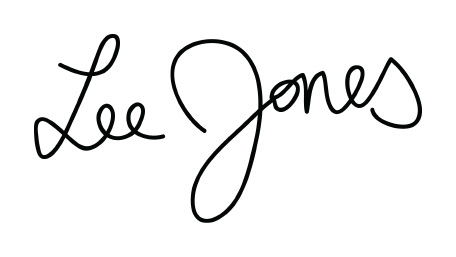 Lee Jones